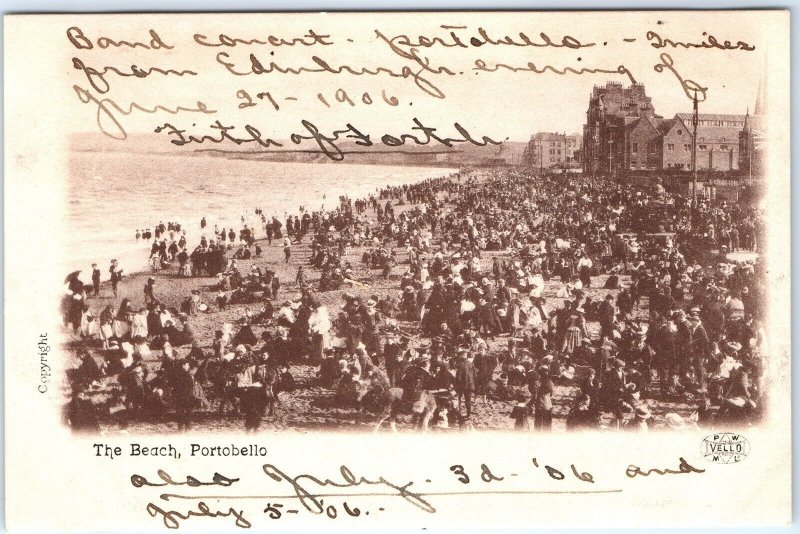 Band concert. Portobello. - 3 miles
from Edinburgh. evening of
June 27 - 1906.
Firth of Forth.
Copyright
The Beach, Portobello
P W
VELLO
M L
also July - 3d - '06 and
July 5 - '06.